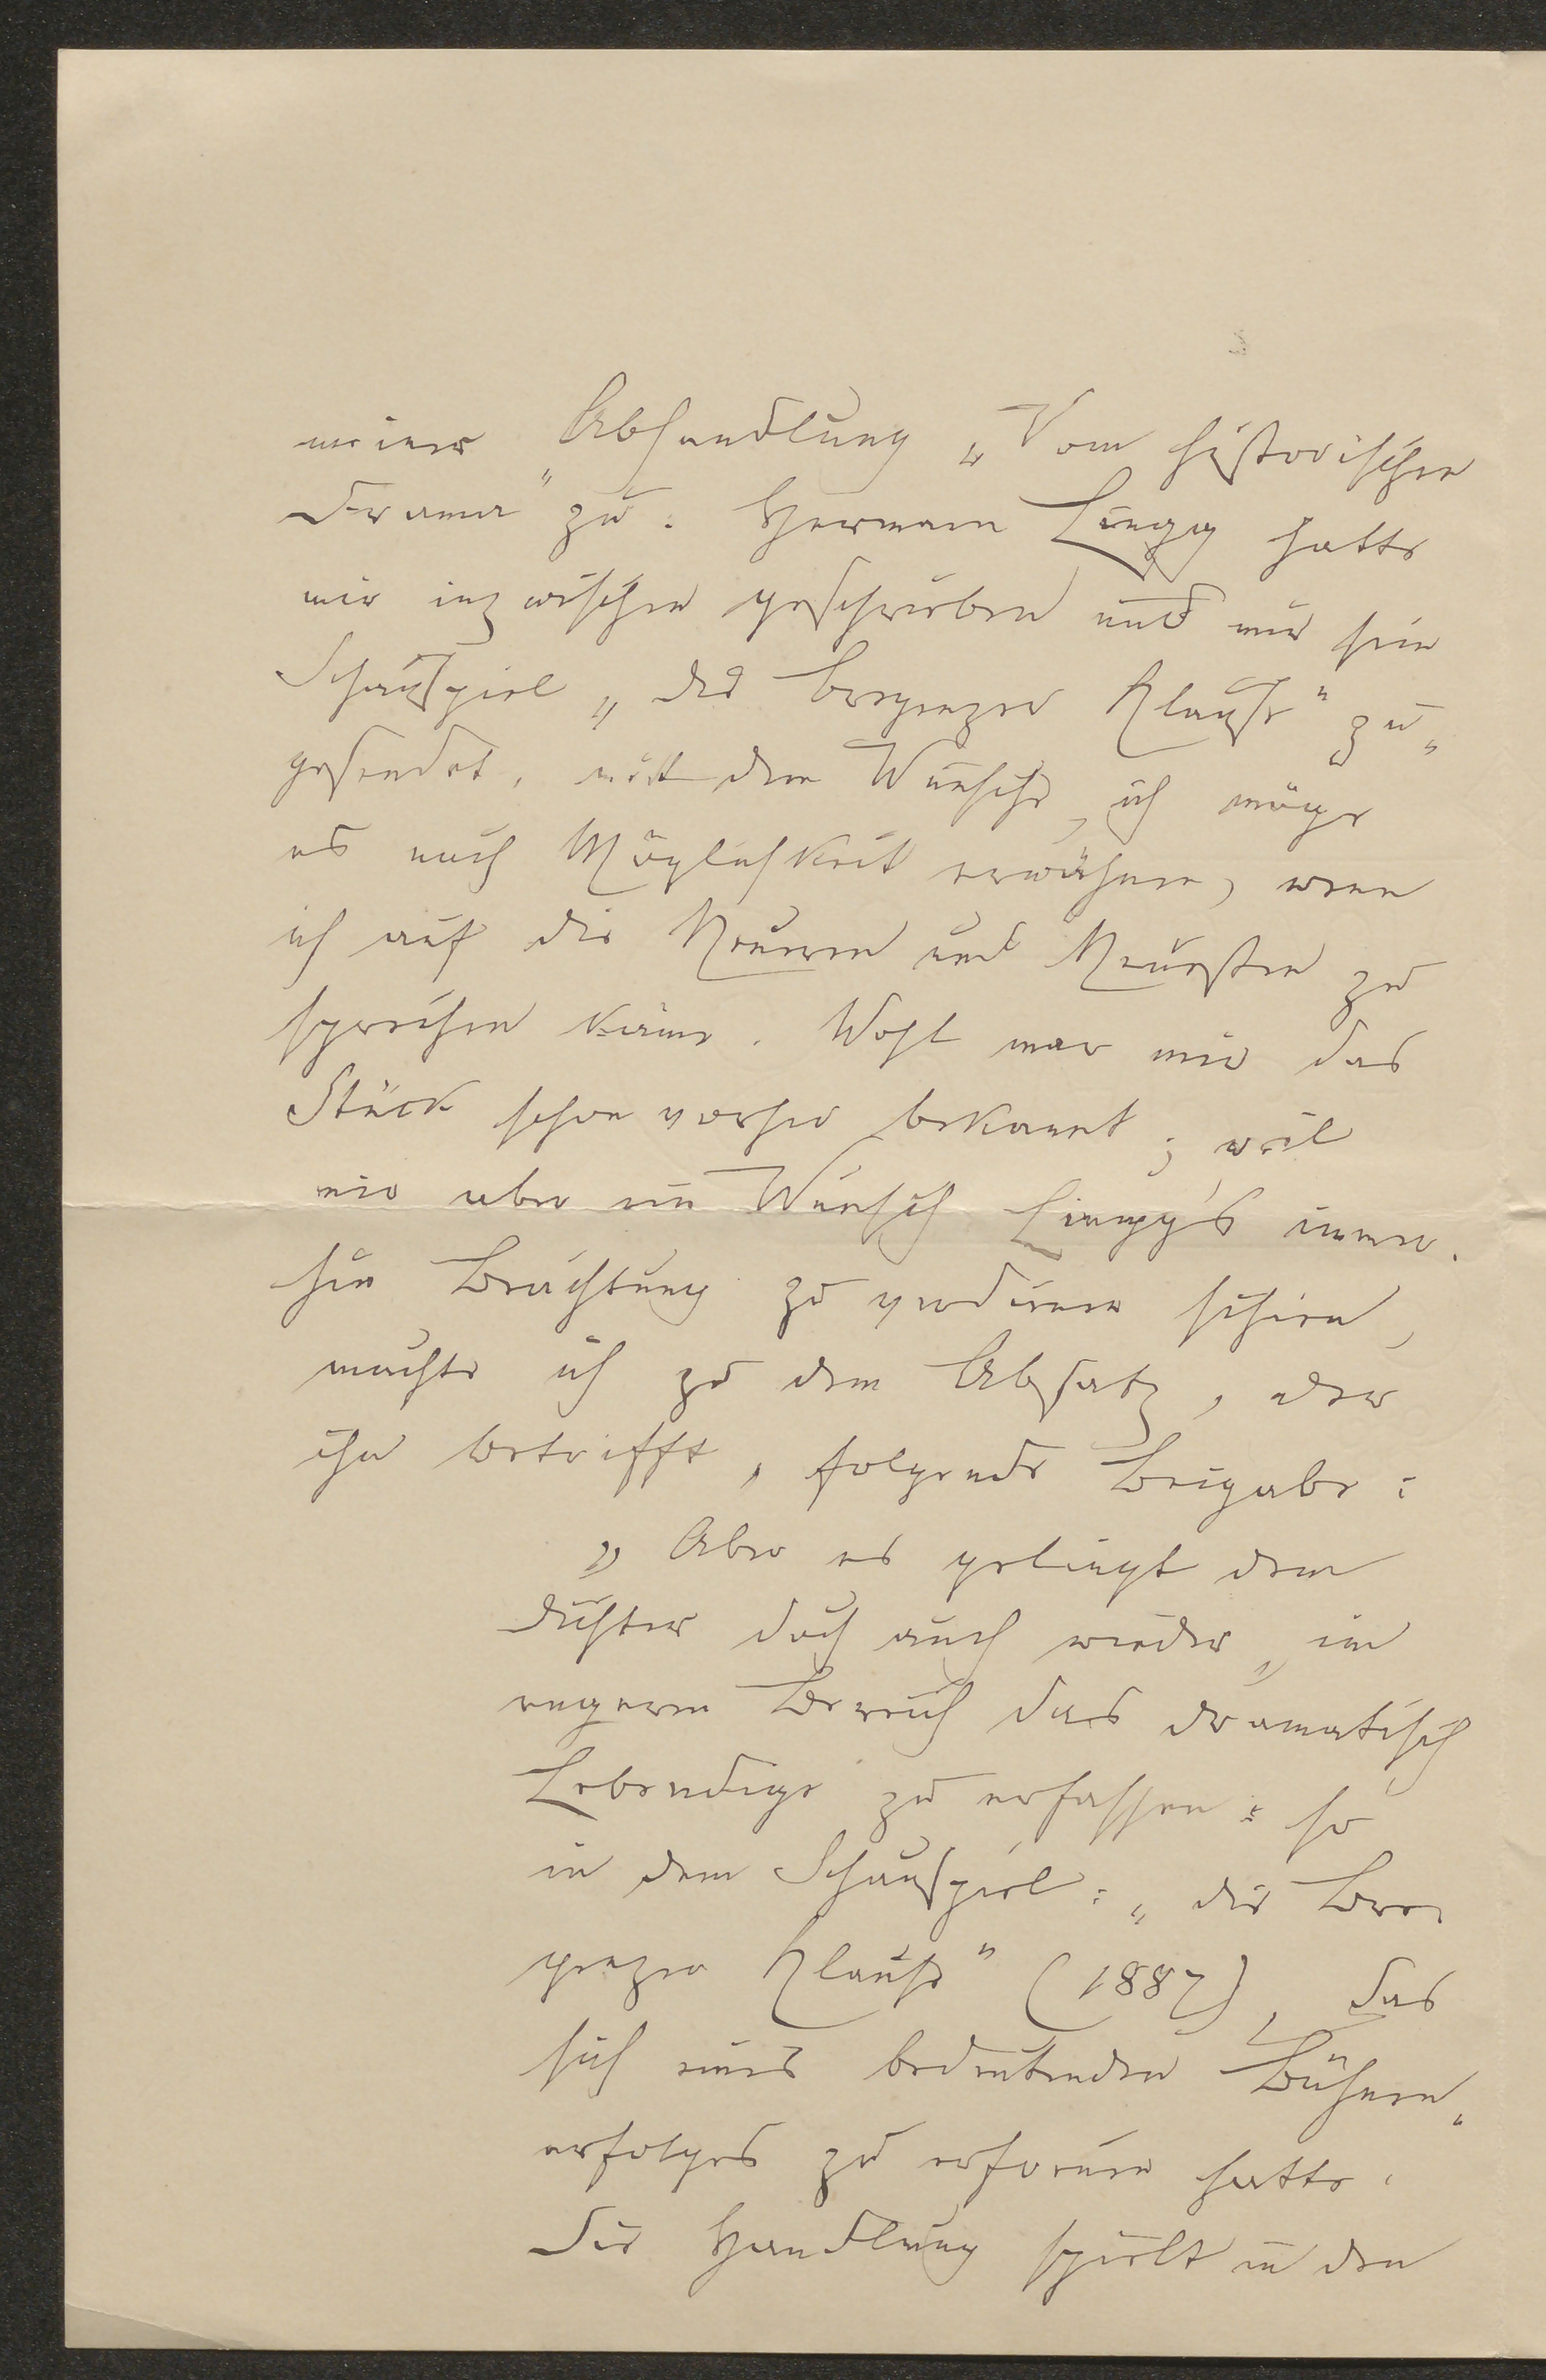 meiner Abhandlung „Vom historischen
Drama" zu. Hermann Lingg hatte
mir inzwischen geschrieben und mir sein
Schauspiel „die Bregenzer Klause" zu„
gesendet, mit dem Wunsche, ich möge
es nach Möglichkeit erwähnen, wenn
ich auf die Neueren und Neuesten zu
sprechen käme. Wohl war mir das
Stück schon vorher bekannt; weil
mir aber ein Wunsch Lingg's immer„
hin Beachtung zu verdienen schien,
machte ich zu dem Absatz, der
ihn betrifft, folgende Beigabe:
„Aber es gelingt dem
Dichter doch auch wieder, im
engeren Bereich das dramatisch
Lebendige zu erfassen: so
in dem Schauspiel: „die Bre„
genzer Klause" (1887), das
sich eines bedeutenden Bühnen„
erfolges zu erfreuen hatte.
Die Handlung spielt in den